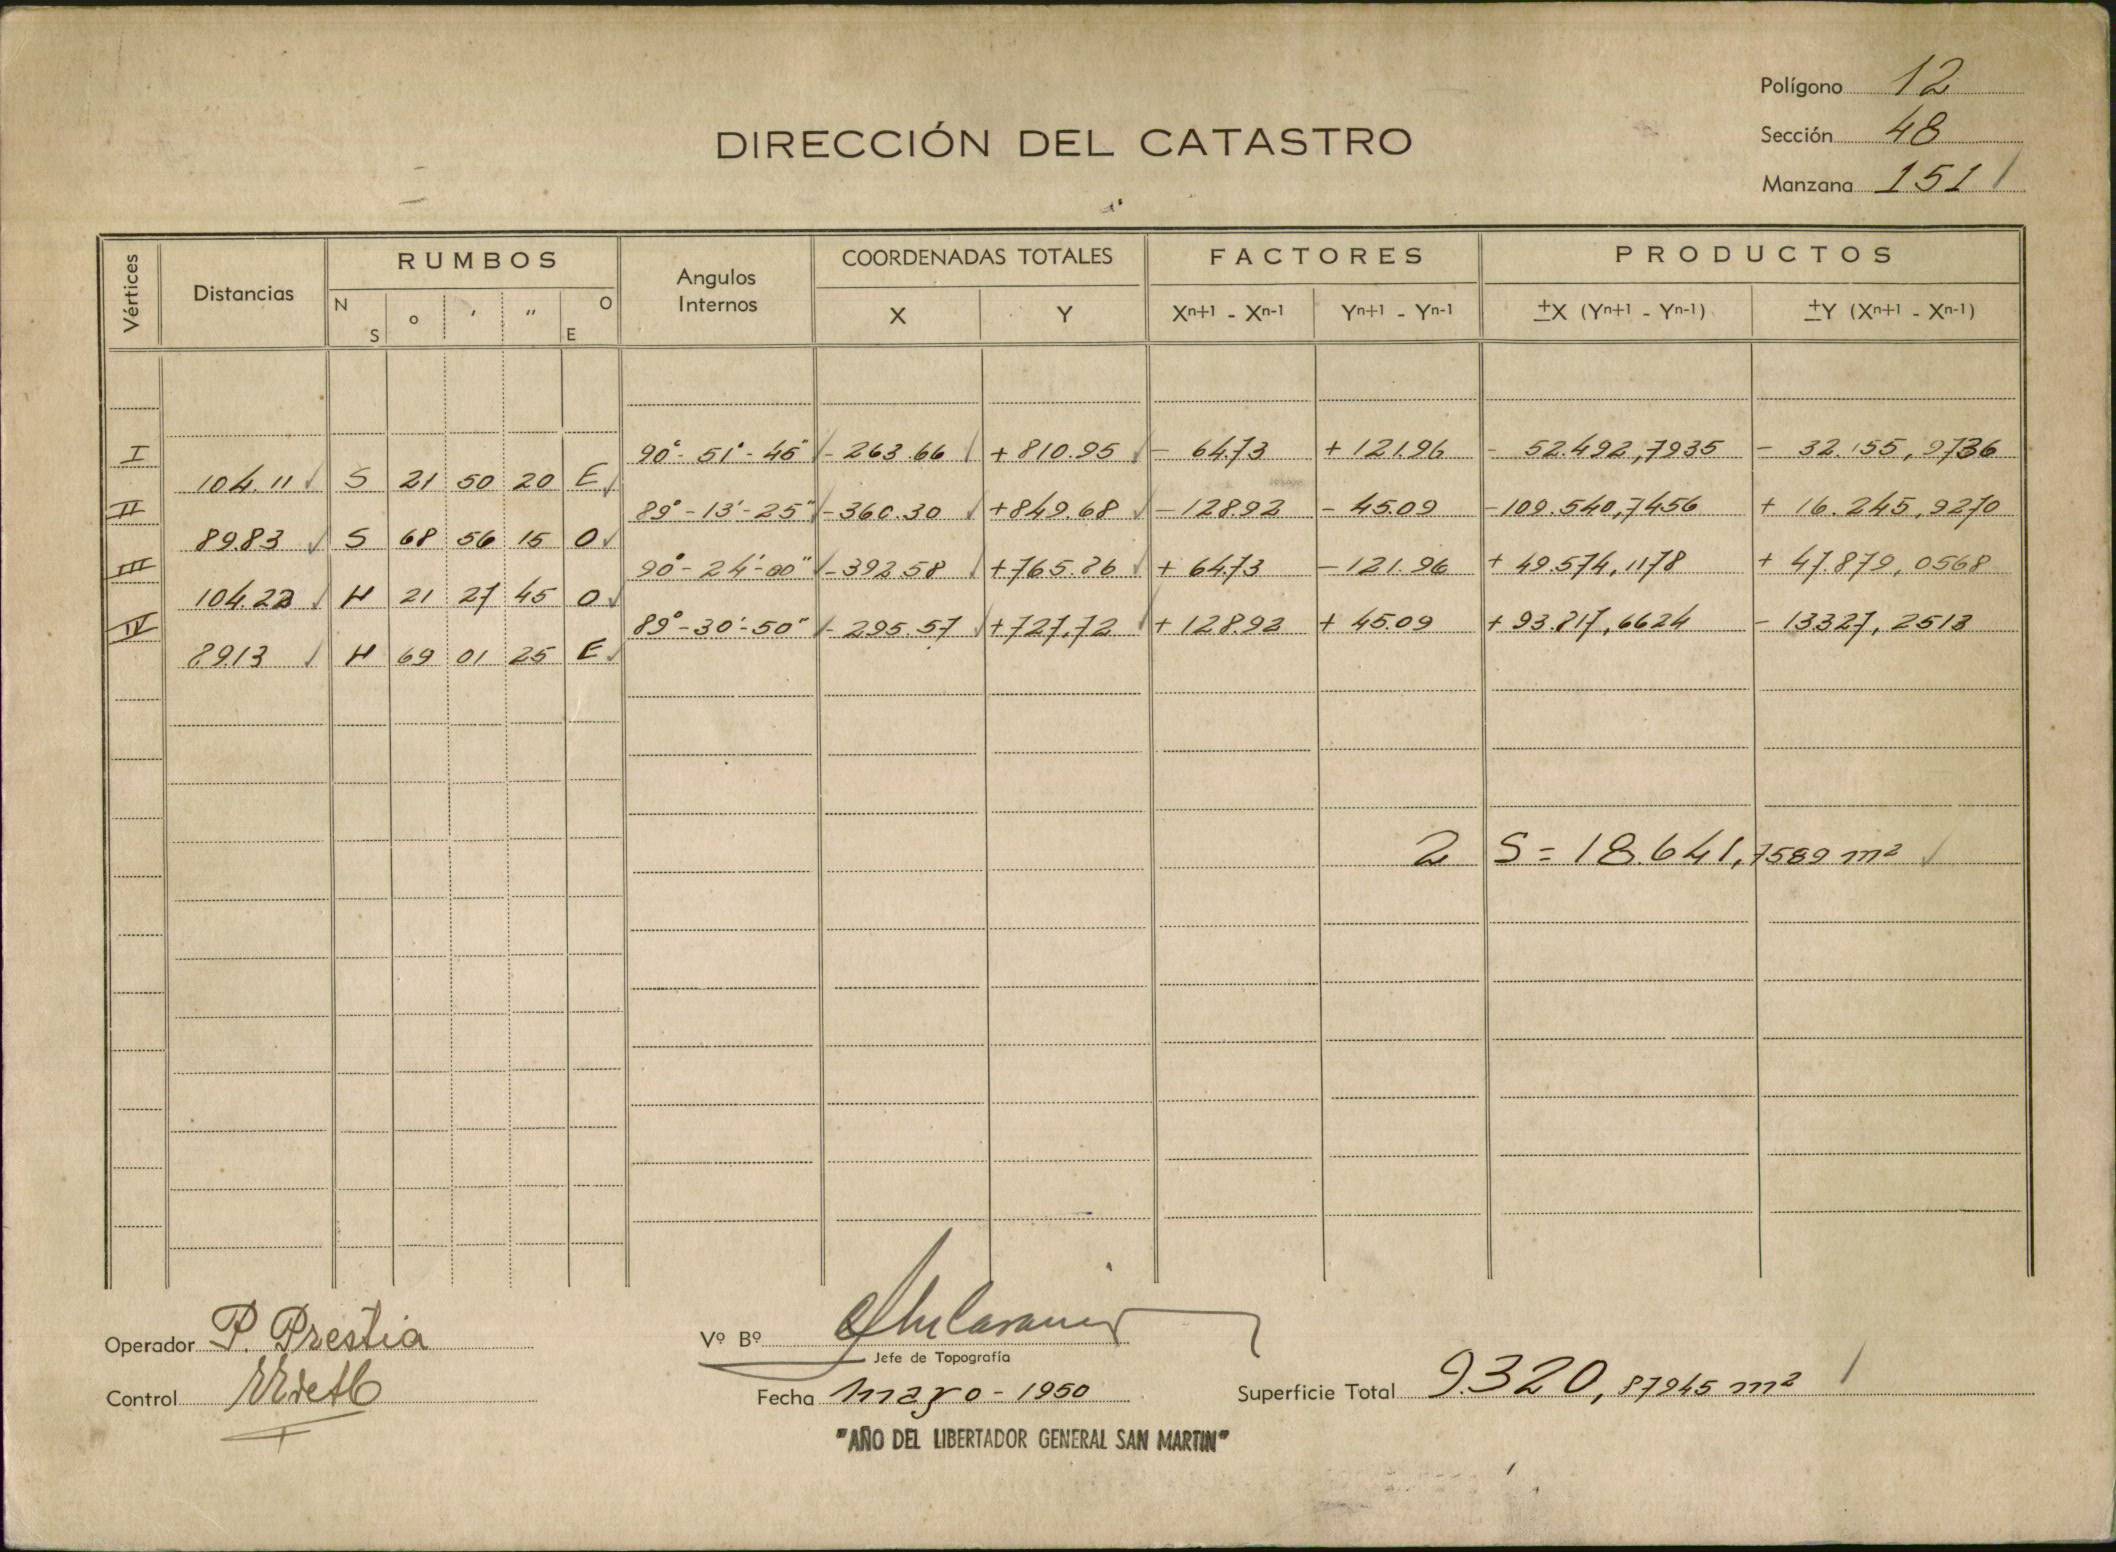 Polígono 12
DIRECCIÓN DEL CATASTRO
Sección 48
Manzana 151
Vértices Distancias RUMBOS Angulos Internos COORDENADAS TOTALES FACTORES PRODUCTOS
N S ° ' " O E X Y Xn+1 - Xn-1 Yn+1 - Yn-1 ±X (Yn+1 - Yn-1) ±Y (Xn+1 - Xn-1)
I 90° - 51' - 45" - 263.66 + 810.95 - 64.73 + 121.96 - 52.492,7935 - 32.155,9736
104.11 S 21 50 20 E
II 89° - 13' - 25" - 360.30 + 849.68 - 128.92 - 45.09 - 109.540,7456 + 16.245,9270
89.83 S 68 56 15 O
III 90° - 24' - 00" - 392.58 + 765.86 + 64.73 - 121.96 + 49.574,1178 + 47.879,0568
104.23 N 21 27 45 O
IV 89° - 30' - 50" - 295.57 + 727.72 + 128.92 + 45.09 + 93.817,6624 - 13327,2513
89.13 N 69 01 25 E
2 S = 18.641,7589 m²
Operador P. Prestia
Vº Bº
Jefe de Topografía
Control
Fecha marzo - 1950
Superficie Total 9.320,87945 m²
"AÑO DEL LIBERTADOR GENERAL SAN MARTIN"